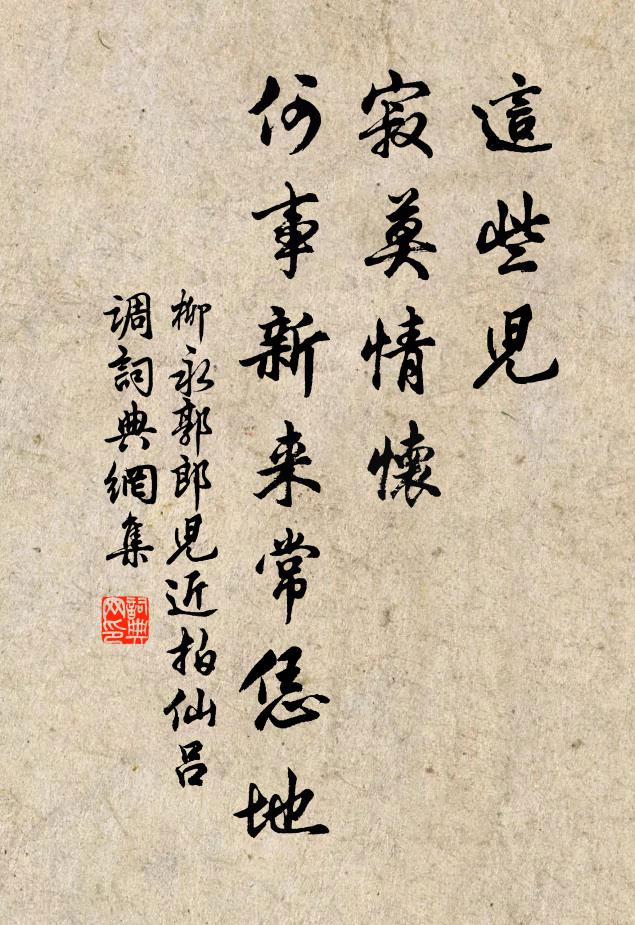 這些兒
寂莫情懷
何事新来常恁地
柳永郭郎兒近拍仙吕
调詞典網集
詞典
网印